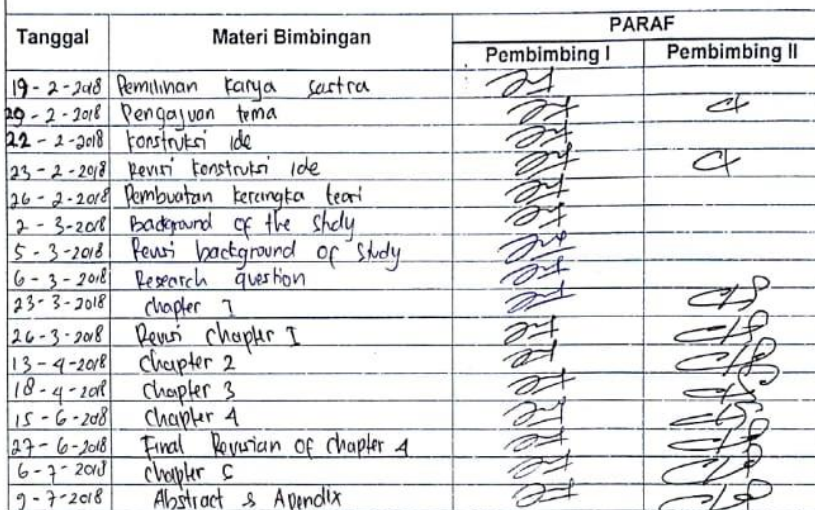 PARAF
Tanggal Materi Bimbingan
Pembimbing I Pembimbing II
19-2-2018 Pemilihan karya sastra
20-2-2018 Pengajuan tema
22-2-2018 konstruksi ide
23-2-2018 Revisi konstruksi ide
26-2-2018 Pembuatan kerangka teori
2-3-2018 Background of the study
5-3-2018 Revisi background of study
6-3-2018 Research question
23-3-2018 Chapter I
26-3-2018 Revisi Chapter I
13-4-2018 Chapter 2
18-4-2018 Chapter 3
15-6-2018 Chapter 4
27-6-2018 Final Revision of Chapter 4
6-7-2018 Chapter 5
9-7-2018 Abstract & Apendix